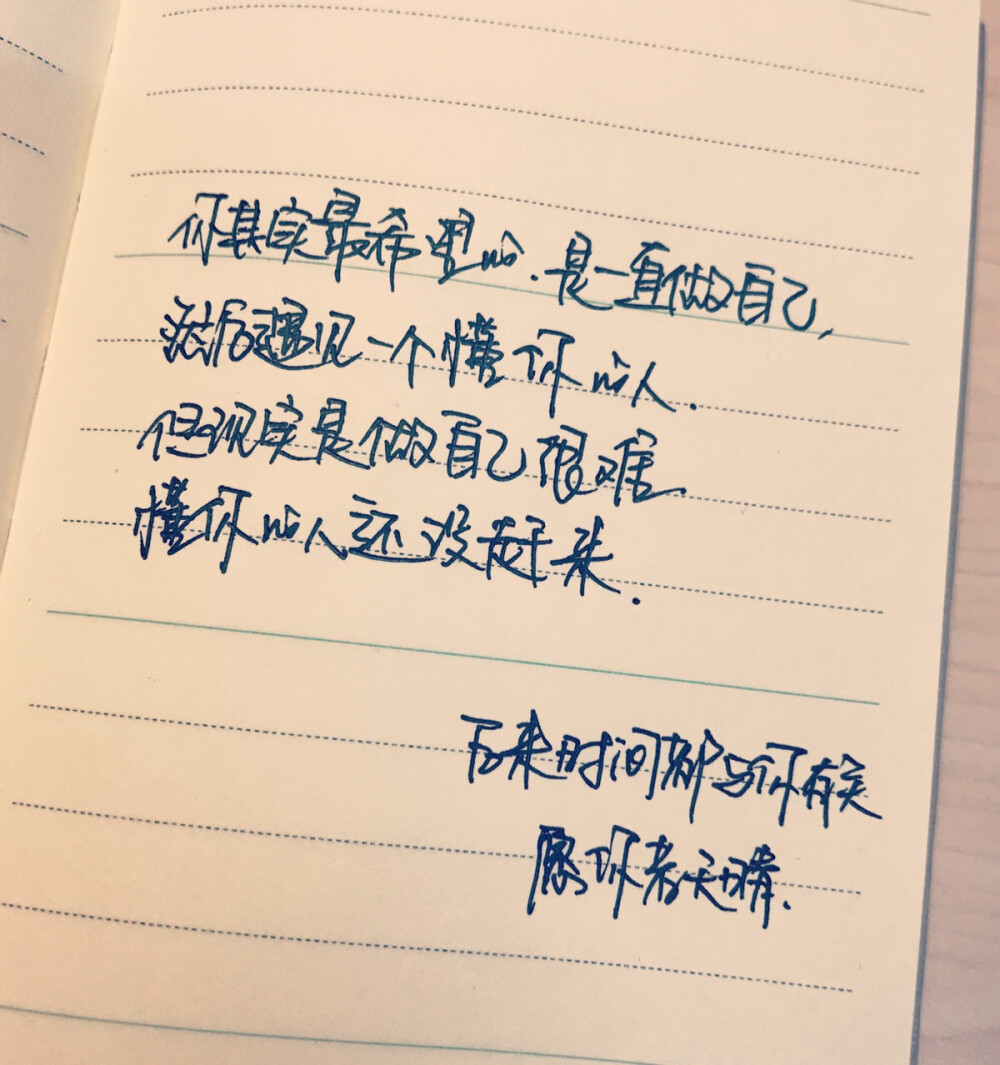 你其实最希望的.是一直做自己,
然后遇见一个懂你的人.
但现实是做自己很难.
懂你的人还没赶来.
后来时间都与你有关
愿你若天晴.